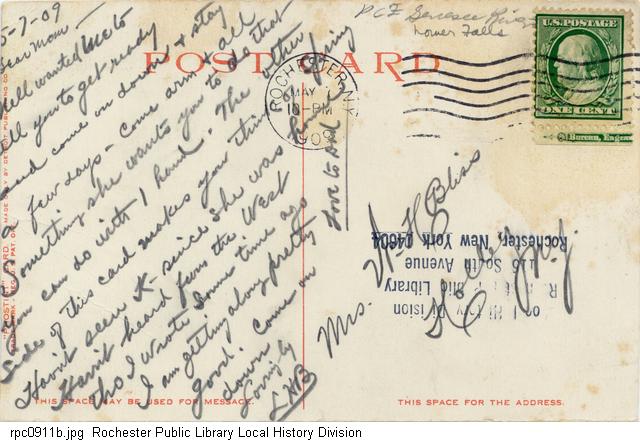 5-7-09
Dear Mom-
Nell wanted me to
tell you to get ready
and come on down & stay
a few days - come arm & all
Something she wants you to do that
you can do with 1 hand. The other
side of this card makes you think of Spring
Havn't seen K since she was home
Havn't heard from the West
tho I wrote some time ago
I am getting along pretty
good. Come on
down
Lovingly
LHB
love to all
PCF Genesee River
Lower Falls
POST CARD
ROCHESTER, N.Y.
MAY 7
10-PM
U.S. POSTAGE
ONE CENT
Bureau, Engra
Mrs. W H Bliss
Holley N.Y.
Local History Division
Rochester Public Library
115 South Avenue
Rochester, New York 14604
THIS SPACE MAY BE USED FOR MESSAGE.
THIS SPACE IS FOR THE ADDRESS.
rpc0911b.jpg Rochester Public Library Local History Division